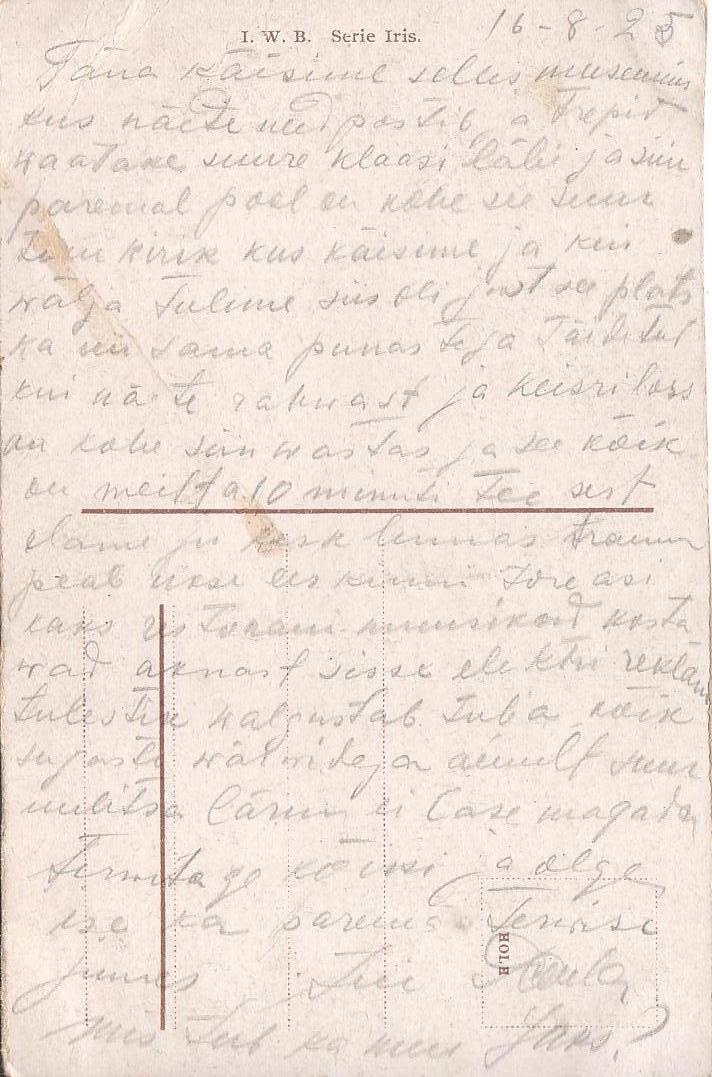 I. W. B. Serie Iris.
16-8-25
Täna käisime selles museumis
kus näete need postid, a trepid
waatame suure klaasi läbi ja siin
paremal pool on kohe see suur
toom kirik kus käisime ja kui
wälja tulime siis oli just see plats
ka nii sama punastega täidetud
kui näete rahwast ja keisri loss
on kohe siin wastas ja see kõik
on meilt a 10 minuti tee sest
elame ju kesk linnas tramm
peab ukse ees kinni tore asi
kaks restorani muusikad kosta
wad aknast sisse elektri reklam
tulestik walgustab tuba kõik
sugusti wärwidega ainult suur
ulitsa lärm ei lase magada
Terwitage kõiki ja olge
ise ka parema terwise
juures Teie
HOLH
mis teeb ka meie